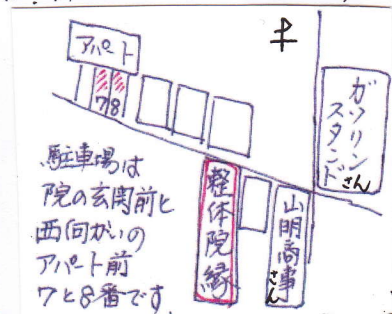 アパート
7 8
ガソリン
スタンド
さん
駐車場は
院の玄関前と
西向かいの
アパート前
7と8番です
整体院縁
山明商事
さん